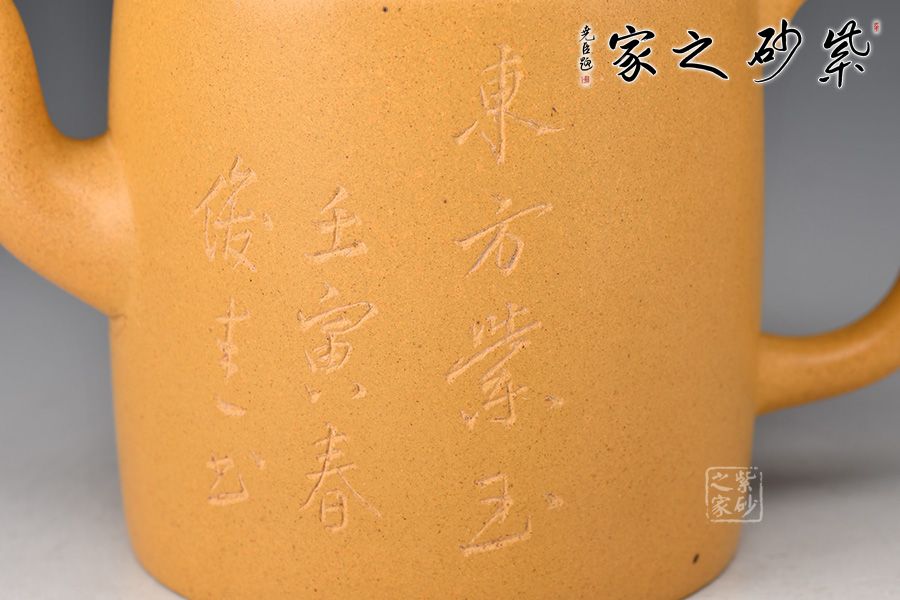 紫砂之家
堯臣題
東方紫玉
壬寅春
紫砂之家